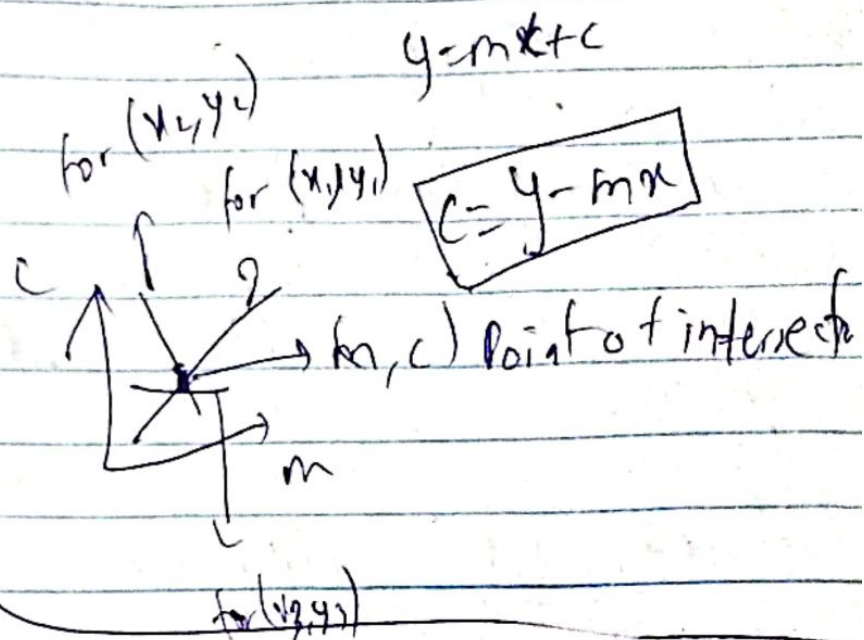 y=mx+c
for (x₂,y₂)
for (x₁,y₁)
c=y-mx
c
(m,c) Point of intersectn
m
for (x₃,y₃)